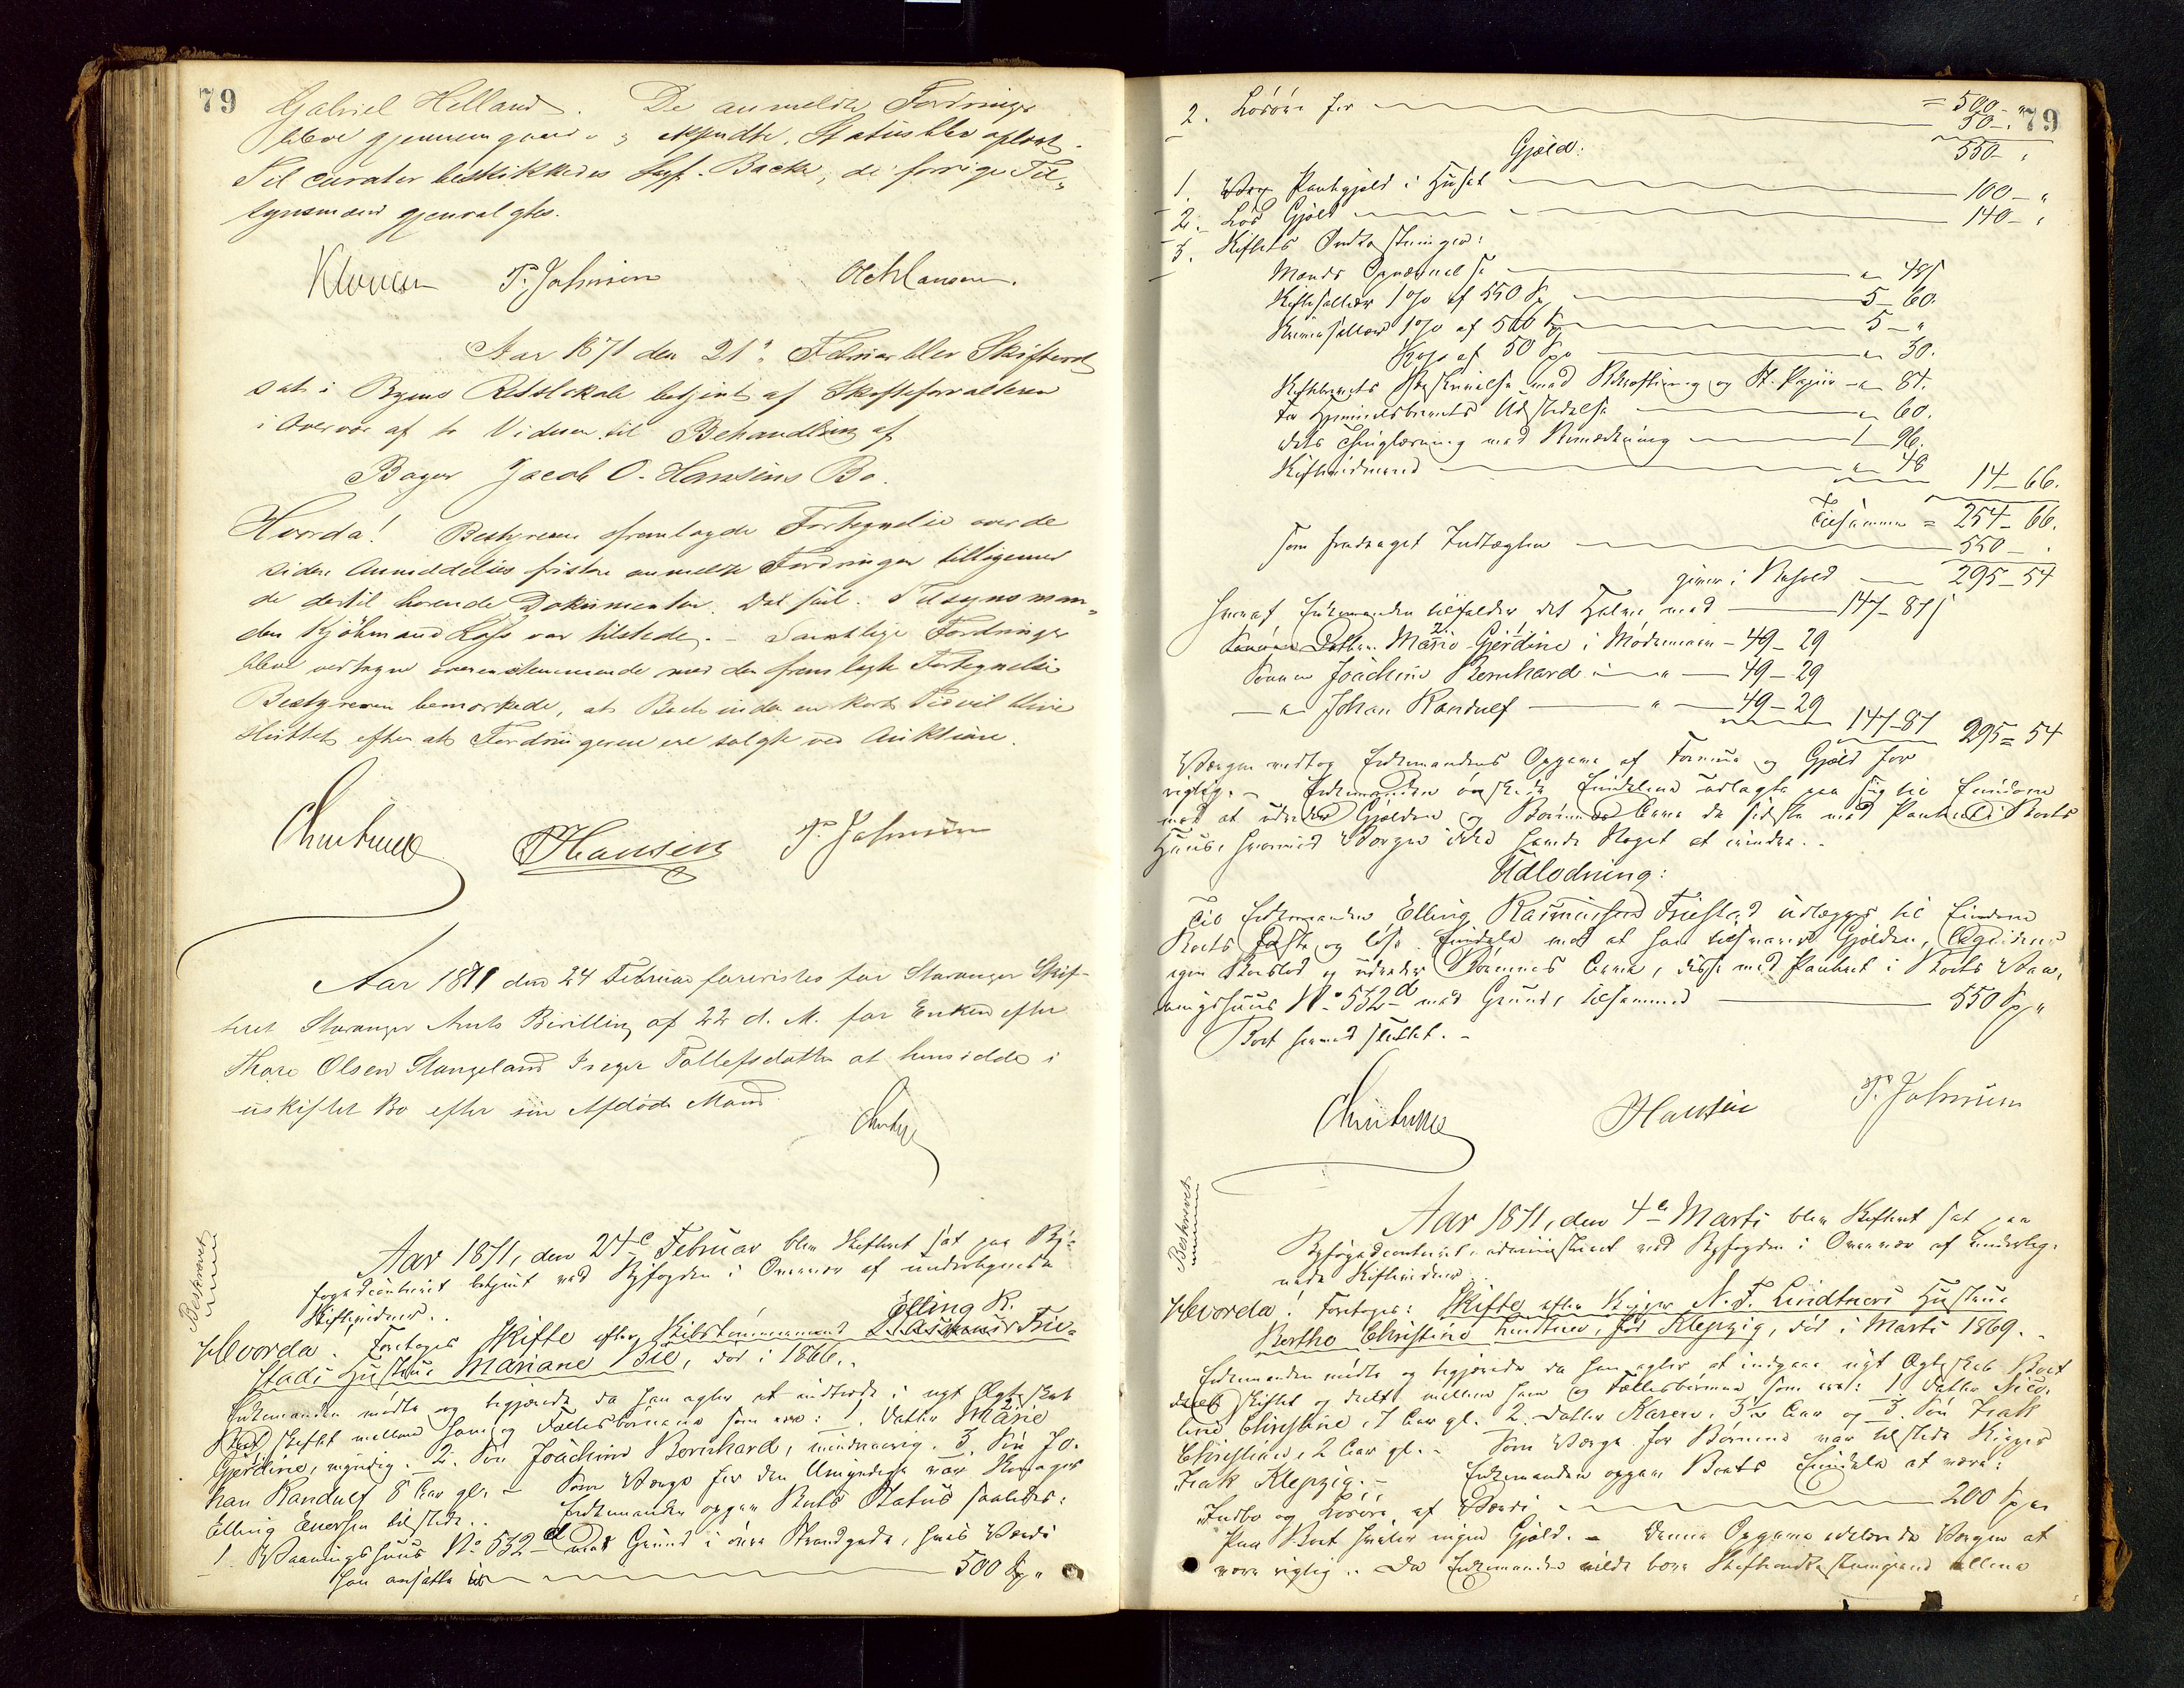 79
Gabriel Helland. De anmeldte Fordringer
bleve gjennemgaaede og . Status blev oplæst.
Til curator beskikkedes Sagf. Backe, de forrige Til-
synsmænd gjenvalgtes.
T. Johnsen Ole Hansen.
Aar 1871 den 21de Februar blev Skifteret
sat i Byens Retslokale betjent af Skifteforvalteren
i Overvær af to Vidner til Behandling af
Bager Jacob O. Hansens Bo.
Hvorda! Bestyreren fremlagde Fortegnelse over de
siden Anmeldelses fristen anmeldte Fordringer tilligemed
de dertil hørende Dokumenter. Tilsynsman-
den Kjøbmand var tilstede. - Samtlige Fordringer
bleve vedtagne overensstemmende med den fremlagte Fortegnelse
Bestyreren bemærkede, at Boet inden en kort Tid vil blive
sluttet, efter at Fordringerne ere solgte ved Auktion.
Hansen T. Johnsen
Aar 1871 den 24 Februar forevistes for Stavanger Skif-
teret Stavanger Amts Bevilling af 22 d. M. for Enken efter
Thore Olsen Stangeland Inger Tollefsdatter at hensidde i
uskiftet Bo efter sin Afdøde Mand.
Beskrevet
Aar 1871, den 24de Februar blev Skifteret sat paa By-
fogedcontoiret betjent ved Byfogden i Overvær af undertegnede
Skiftevidner..
Hvorda. Foretoges Skifte efter Skibstømmermand Elling R. Rasmus Frie-
stads Hustrue Mariane Bie, død i 1866..
Enkemanden mødte og begjærede da han agter at indtræde i nyt Ægteskab
Boet skiftet mellem ham og Fællesbørnene som ere: 1. Datter Marie
Gjerdine, myndig. 2. Søn Joachim Bernhard, mindreaarig. 3. Søn Jo-
han Randulf 8 Aar gl. - Som Værge for den Umyndige var
Elling Enersen tilstede.. Enkemanden opgav Boets Status saaledes:
1 Vaaningshuus No 532d med Grund i øvre Strandgade, hvis Værdi
han ansatte til 500 Sp „
79
2. Løsøre for 50 - „
= 500 - „
550 - „
Gjæld:
1. Pantegjæld i Huset 100 - „
2. Løs Gjæld 140 - „
3. Skiftets Omkostninger:
Mænds Opnævnelse „ 48
Skiftesallær 1 o/o af 550 Sp 5 - 60.
1 o/o af 500 Sp 5 - „
af 50 Sp „ 30.
Skiftebrevets Beskrivelse med og St. Papir „ 84.
For Hjemmelsbrevets Udstedelse „ 60.
dets Thinglæsning med 1 96.
Skiftevidnerne „ 48 14 - 66.
Tilsammen = 254 - 66.
som fradraget Indtægten 550 - „
giver i Behold 295 - 54
hvoraf Enkemanden tilfalder det Halve med 147 - 87
Datter Marie Gjerdine i Mødrenearv - 49 - 29
Sønnen Joachim Bernhard „ 49 - 29
„ Johan Randulf „ 49 - 29
147 - 87 295 = 54
Værgen vedtog Enkemandens Opgave af Formue og Gjæld for
rigtig. - Enkemanden ønskede Eiendelene udlagte paa sig til Eiendom
mod at udrede Gjælden og Børnenes Arv da sidste mod Panteret i Boets
Huus, hvorimod Værgen ikke havde Noget at erindre. -
Udlodning:
Til Enkemanden Elling Rasmussen Friestad udlægges til Eiendom
Boets faste og løse Eiendele mod at han tilsvarer Gjælden,
egen Boeslod og udreder Børnenes Arv, disse med Panteret i Boets Vaa-
ningshuus No 532d med Grund, tilsammen 550 Sp „
Boet hermed sluttet. -
Hansen T. Johnsen
Beskrevet
Aar 1871, den 4de Marts blev Skifteret sat paa
Byfogedcontoiret, administreret ved Byfogden i Overvær af underteg-
nede Skiftevidner.
Hvorda! Foretoges: Skifte efter Skipper N. F. Lindtners Hustrue
Berthe Christine Lindtner, fød Klepzig, død i Marts 1869. -
Enkemanden mødte og begjærede da han agter at indgaae nyt Ægteskab Boet
skiftet og deelt mellem ham og Fællesbørnene som ere: 1. Datter
Christine, 7 Aar gl. 2. Datter Karen, 3½ Aar og 3. Søn Isak
Christian, 2 Aar gl. - Som Værge for Børnene var tilstede Skipper
Isak Klepzig. - Enkemanden opgav Boets Eiendele at være:
Indbo og Løsøre af Værdi 200 Sp „
Paa Boet hviler ingen Gjæld. - Denne Opgave erklærede Værgen at
være rigtig.. Da Enkemanden vilde bære Skifteomkostningerne allene